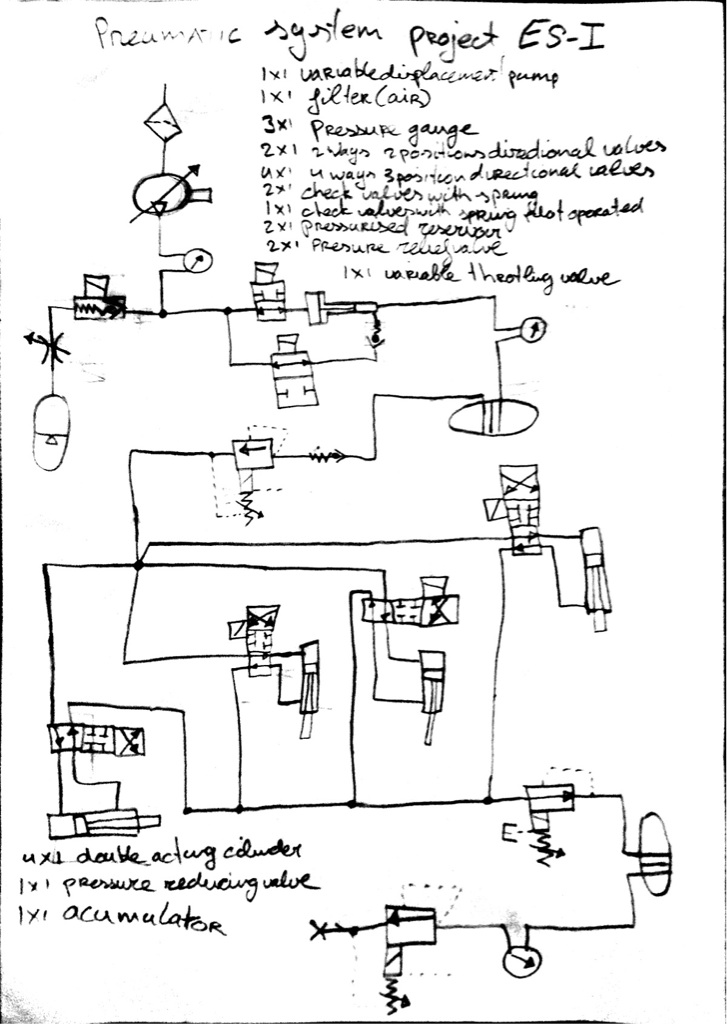 Pneumatic system project ES-I
1x1 variable displacement pump
1x1 filter (air)
3x1 Pressure gauge
2x1 2 ways 2 positions directional valves
4x1 4 ways 3 position directional valves
2x1 check valves with spring
1x1 check valves with spring pilot operated
2x1 pressurised reservoir
2x1 Presure relief valve
1x1 variable throtling valve
E
4x1 double acting cilinder
1x1 pressure reducing valve
1x1 acumulator